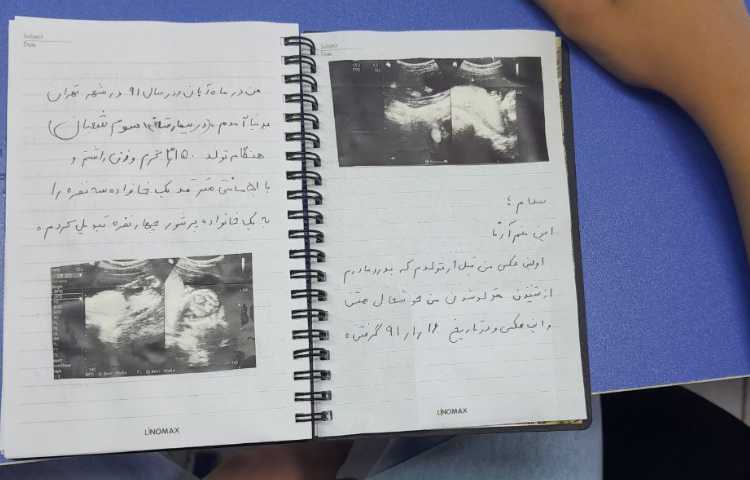 سلام ؛
این منم آرتا
اولین عکس من قبل از تولدم که پدر و مادرم
از شنیدن متولد شدن من خوشحال هستن
و این عکس در تاریخ ۹۱ گرفتن
LINOMAX
من در ماه آبان در سال ۹۱ در شهر تهران
بدنیا آمدم (در بیمارستان سوم شعبان)
هنگام تولد گرم وزن داشتم و
با ۵۱ سانتی متر قد یک خانواده سه نفره را
به یک خانواده پرشور چهار نفره تبدیل کردم.
LINOMAX